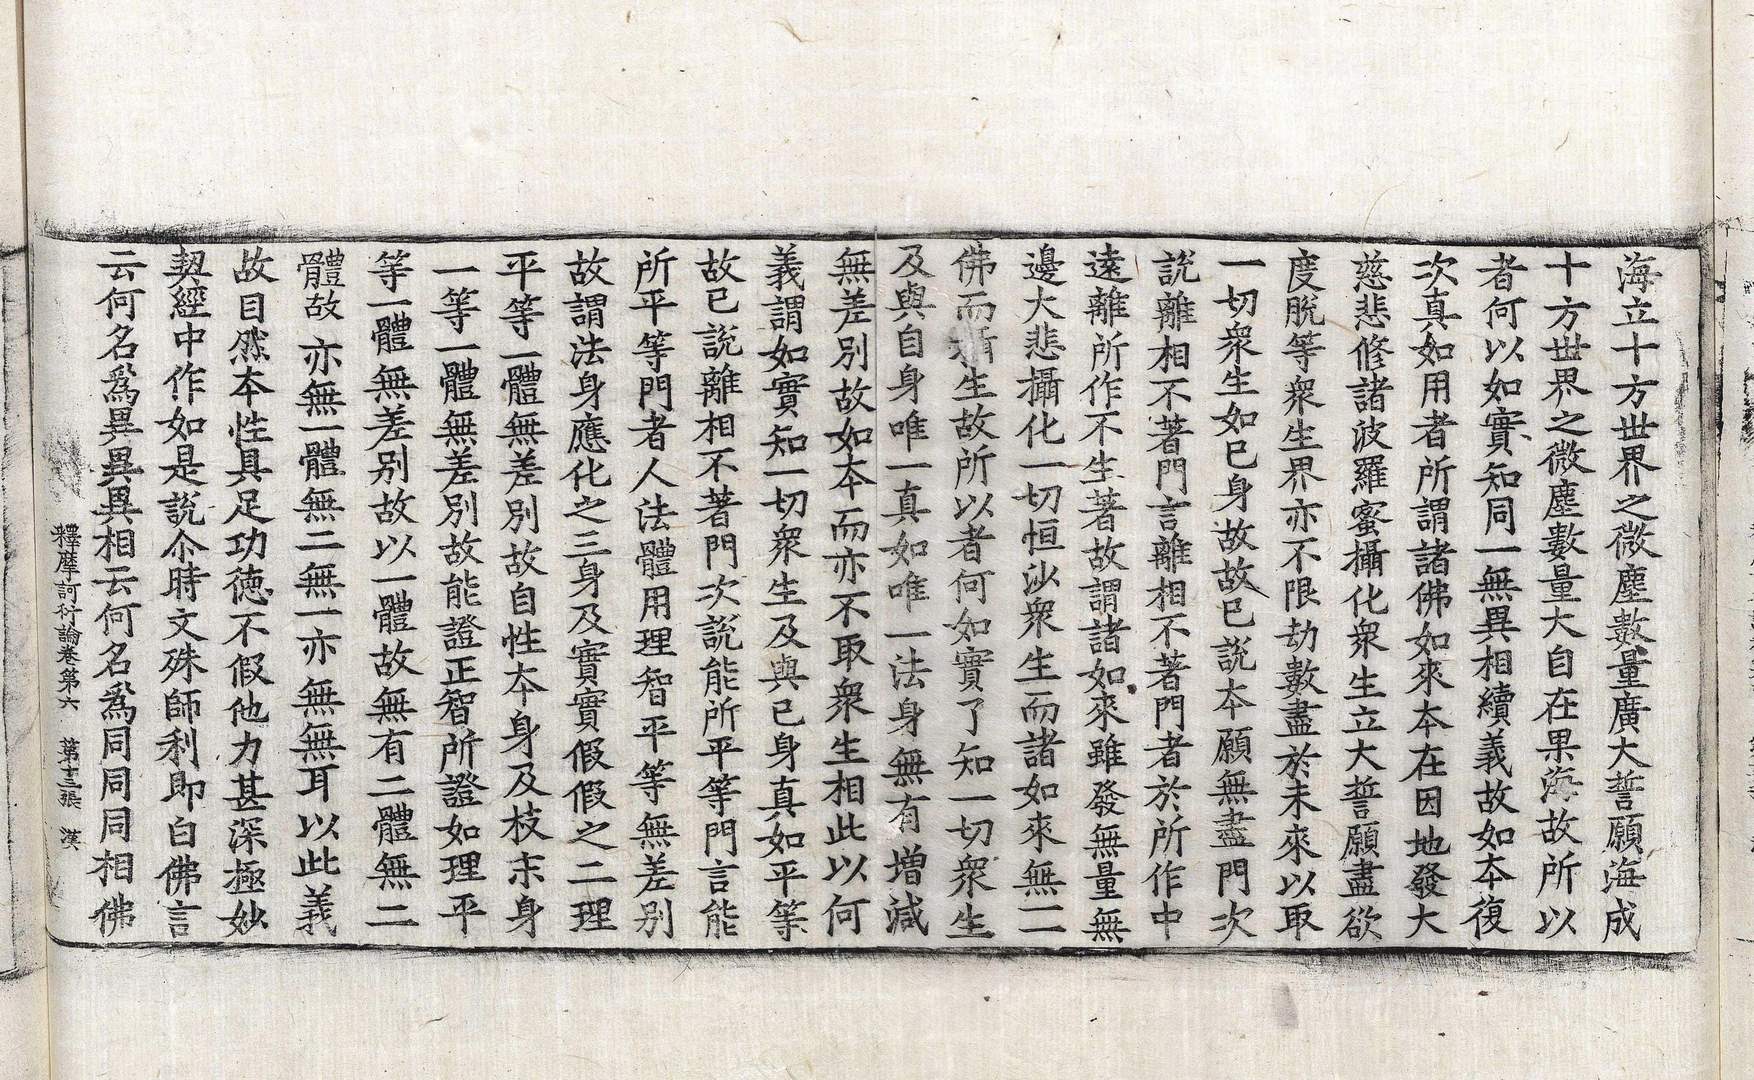 海立十方世界之微塵數量廣大誓願海成
十方世界之微塵數量大自在果海故所以
者何以如實知同一無異相續義故如本復
次真如用者所謂諸佛如來本在因地發大
慈悲修諸波羅蜜攝化衆生立大誓願盡欲
度脫等衆生界亦不限劫數盡於未來以取
一切衆生如已身故故已說本願無盡門次
說離相不著門言離相不著門者於所作中
遠離所作不生著故謂諸如來雖發無量無
邊大悲攝化一切恒沙衆生而諸如來無一
佛而攝生故所以者何如實了知一切衆生
及與自身唯一真如唯一法身無有增減
無差別故如本而亦不取衆生相此以何
義謂如實知一切衆生及與已身真如平等
故已說離相不著門次說能所平等門言能
所平等門者人法體用理智平等無差別
故謂法身應化之三身及實實假假之二理
平等一體無差別故自性本身及枝末身
一等一體無差別故能證正智所證如理平
等一體無差別故以一體故無有二體無二
體故亦無一體無二無一亦無無耳以此義
故自然本性具足功德不假他力甚深極妙
契經中作如是說尒時文殊師利即白佛言
云何名爲異異異相云何名爲同同同相佛
釋摩訶衍論卷第六 第十三張 漢